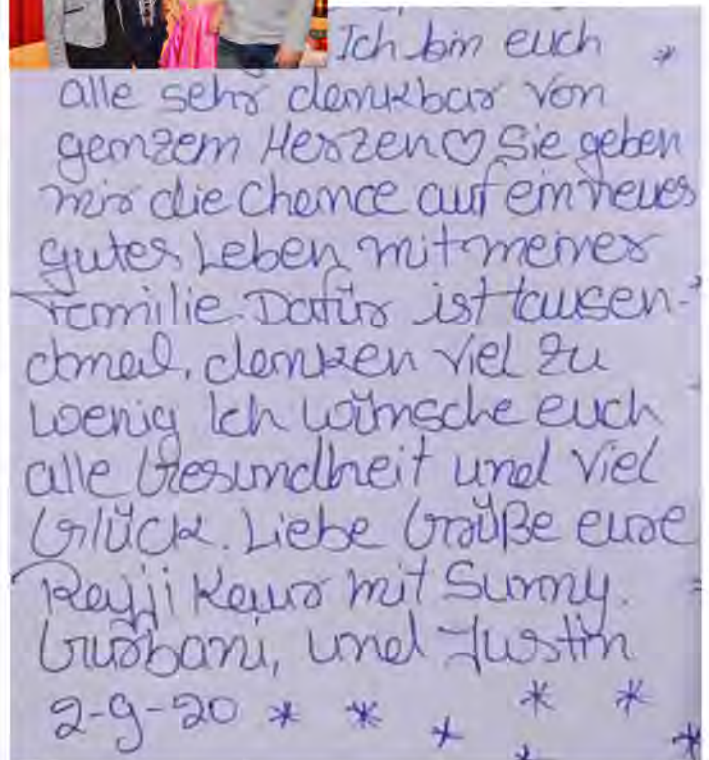 Ich bin euch *
alle sehr dankbar von
ganzem Herzen♡ Sie geben
mir die Chance auf ein neues
gutes Leben mit meiner
Familie. Dafür ist tausen-
dmal, danken viel zu
wenig Ich wünsche euch
alle Gesundheit und viel
Glück. Liebe Grüße eure
Rajji Kaur mit Sunny.
Gurbani, und Justin
2-9-20 * * * * *